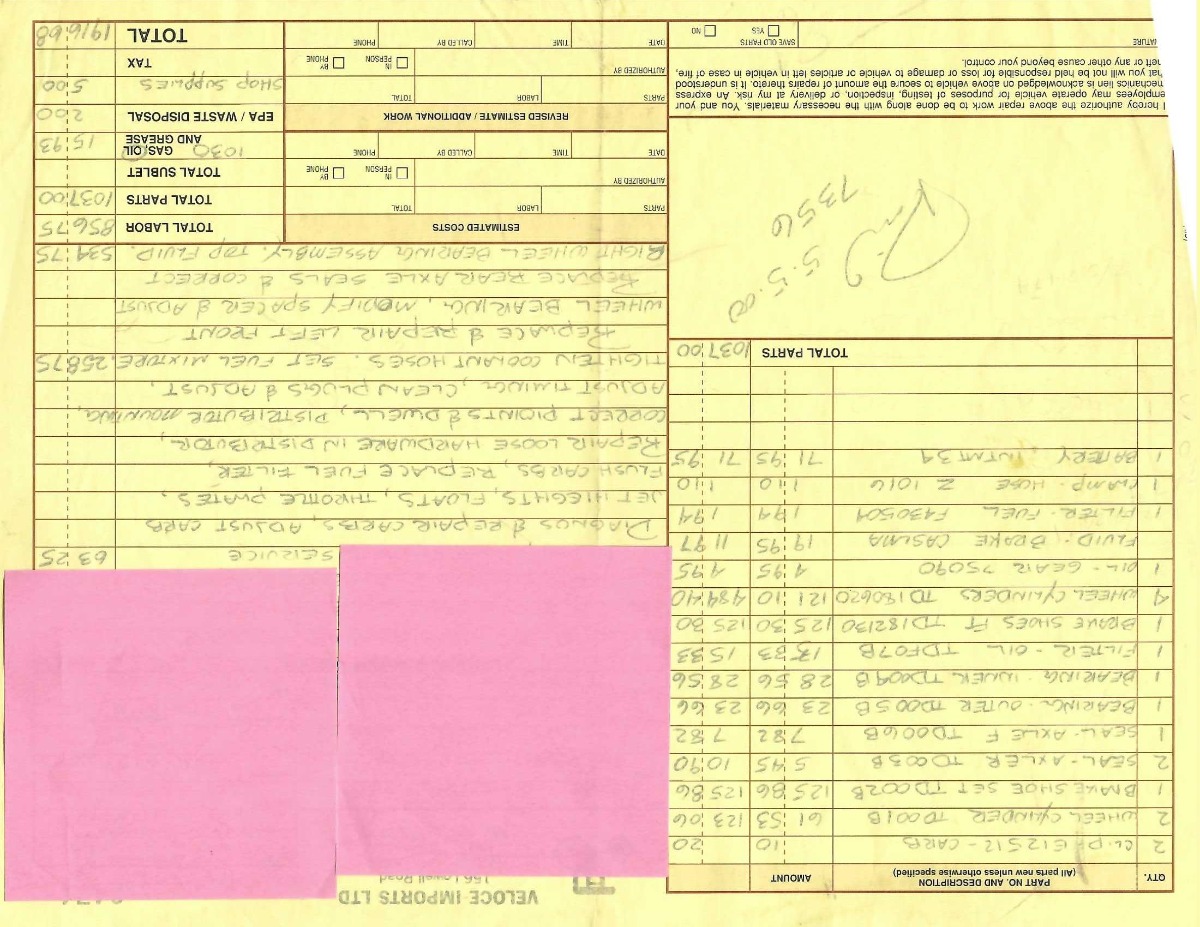 VELOCE IMPORTS LTD
QTY. PART NO. AND DESCRIPTION (All new parts unless otherwise specified) AMOUNT
2 CL.PHE12S12 - CARB 10 20
2 WHEEL CYLINDER TD001B 61 53 123 06
1 BRAKE SHOE SET TD002B 125 86 125 86
2 SEAL - AXLE R TD003B 5 45 10 90
1 SEAL - AXLE F TD006B 7 82 7 82
1 BEARING - OUTER TD005B 23 66 23 66
1 BEARING - INNER TD004B 28 56 28 56
1 FILTER - OIL - TDF07B 15 33 15 33
1 BRAKE SHOES FT TD182130 125 30 125 30
4 WHEEL CYLINDERS TD180620 121 10 484 40
1 OIL - GEAR 75090 4 95 4 95
FLUID - BRAKE CASLMA 19 95 11 97
1 FILTER - FUEL - F430504 1 94 1 94
1 CLAMP - HOSE Z 1016 1 10 1 10
1 BATTERY, INTNT34 71 95 71 95
TOTAL PARTS 1037 00
5.5.00
7356
I hereby authorize the above repair work to be done along with the necessary materials. You and your
employees may operate vehicle for purposes of testing, inspection, or delivery at my risk. An express
mechanics lien is acknowledged on above vehicle to secure the amount of repairs thereto. It is understood
that you will not be held responsible for loss or damage to vehicle or articles left in vehicle in case of fire,
theft or any other cause beyond your control.
NATURE SAVE OLD PARTS YES NO
SERVICE 63 25
DIAGNOS & REPAIR CARBS, ADJUST CARB
JET HIEGHTS, FLOATS, THROTTLE PLATES,
FLUSH CARBS, REPLACE FUEL FILTER,
REPAIR LOOSE HARDWARE IN DISTRIBUTOR,
CORRECT PIONTS & DWELL, DISTRIBUTOR MOUNTING,
ADJUST TIMING, CLEAN PLUGS & ADJUST,
TIGHTEN COOLANT HOSES. SET FUEL MIXTURE. 258 75
REPLACE & REPAIR LEFT FRONT
WHEEL BEARING, MODIFY SPACER & ADJUST
REPLACE REAR AXLE SEALS & CORRECT
RIGHT WHEEL BEARING ASSEMBLY. TOP FLUID. 534 75
ESTIMATED COSTS
PARTS LABOR TOTAL
AUTHORIZED BY IN PERSON BY PHONE
DATE TIME CALLED BY PHONE
REVISED ESTIMATE / ADDITIONAL WORK
PARTS LABOR TOTAL
AUTHORIZED BY IN PERSON BY PHONE
DATE TIME CALLED BY PHONE
TOTAL LABOR 856 75
TOTAL PARTS 1037 00
TOTAL SUBLET
1030 GAS, OIL AND GREASE 15 93
EPA / WASTE DISPOSAL 2 00
SHOP SUPPLIES 5 00
TAX
TOTAL 1916 68